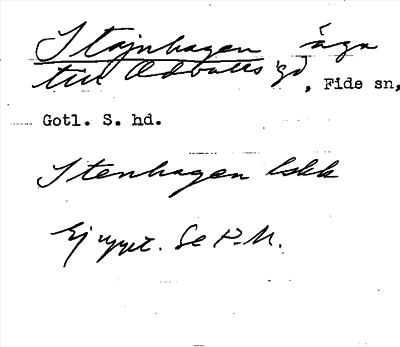 Stajnhagen äga
till Odvalls gd, Fide sn,
Gotl. S. hd.
Stenhagen lskk
Ej uppt. Se P.M.